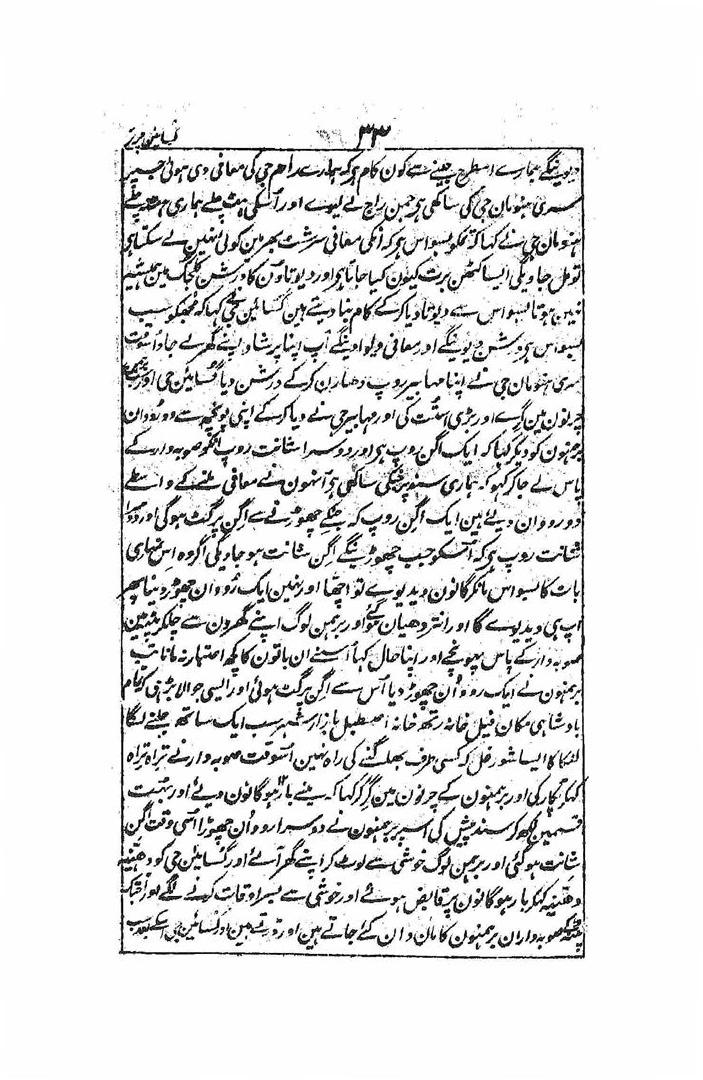 ۳۳
دیوینگے ہمارے اسطرح جینے سے کون کام ہو کہ ہمارے رام جی کی معافی دی ہوئی جسپر
سری ہنومان جی کی ساکھی ہو جمن راج لے لیوے اور اُسکی ہٹ چلے ہماری ہٹ نہ چلے
ہنومان جی نے کہا کہ تمکو بسواس ہو کہ انکی معافی سرشٹ بھر مین کوئی نہین لے سکتا ہی
تو مل جاویگی ایسا کٹھن برت کیون کیا جاتا ہو اور دیوتاون کا درشن کلجگ مین ہمیشہ
نہین ہوتا بسواس سے دیوتا دیا کرکے کام بنا دیتے ہین گسائین جی کہا کہ مجھکو سب
بسواس ہو درشن دیوینگے اور معافی دلوا دینگے آپ اپنا پرشاد اپنے گھر لے جاؤ اسوقت
سری ہنومان جی نے اپنا مہابیر روپ دھارن کرکے درشن دیا گسائین جی اور برہمن
چرنون مین گرے اور بڑی استت کی اور مہابیر جی نے دیا کرکے اپنی پونچھ سے دو رووان
برہمنون کو دیکر کہا کہ ایک اگن روپ ہی اور دوسرا شانت روپ انکو صوبہ دار کے
پاس لے جا کر کہو کہ ہماری سند پر جنکی ساکھی ہو اُنہون نے معافی ملنے کے واسطے
دو رووان دیے ہین ایک اگن روپ کہ جسکے چھوڑنے سے اگن پرگٹ ہوگی اور دوسرا
شانت روپ ہی کہ اُسکو جب چھوڑینگے اگن شانت ہو جاویگی اگر وہ اس تمہاری
بات کا بسواس مانکر گانون دیدیوے تو اچھا اور نہین ایک رووان چھوڑ دینا پھر
آپ ہی دیدیوے گا اور انتردھیان ہوگئے اور برہمن لوگ اپنے گھرون سے چلکر پٹنہ مین
صوبہ دار کے پاس پہونچے اور اپنا حال کہا اُسنے ان باتون کا کچھ اعتبار نہ مانا تب
برہمنون نے ایک رووان چھوڑ دیا اُس سے اگن پرگٹ ہوئی اور ایسی جوالا بڑھی کہ تمام
بادشاہی مکان فیل خانہ رتھ خانہ اصطبل بازار شہر سب ایک ساتھ جلنے لگا
لنکا کا ایسا شور غل کہ کسی طرف بھاگنے کی راہ نہین اُسوقت صوبہ دار نے تراہ تراہ
کہکر پکار کی اور برہمنون کے چرنون مین گر کر کہا کہ مینے بارہو گانون دیے اور بہت
قسمین لکھ کر سند پیش کی اسپر برہمنون نے دوسرا رووان چھوڑا اُسی وقت اگن
شانت ہوگئی اور برہمن لوگ خوشی سے لوٹ کر اپنے گھر آئے اور گسائین جی کو دھنیہ
دھنیہ کہکر بارہو گانون پر قابض ہوئے اور خوشی سے بسر اوقات کرنے لگے اور ابتک
پٹنہ کے صوبہ دار ان برہمنون کا مان دان کئے جاتے ہین اور ڈرتے ہین اور گسائین جی اسکے بعد سب